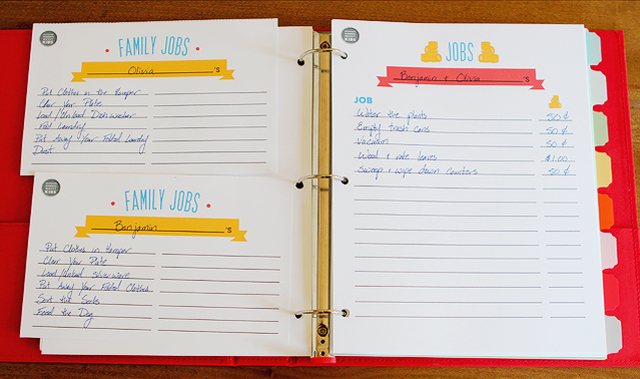 FAMILY JOBS
Olivia 'S
Put Clothes in the Hamper
Clear Your Plate
Load/Unload Dishwasher
Fold Laundry
Put Away Your Folded Laundry
Dust
FAMILY JOBS
Benjamin 'S
Put Clothes in Hamper
Clear Your Plate
Load/Unload Silverware
Put Away Your Folded Clothes
Sort the Socks
Feed the Dog
JOBS
Benjamin & Olivia 'S
JOB
Water the plants 50¢
Empty trash cans 50¢
Vacuum 50¢
Weed & rake leaves $1.00
Sweep & wipe down counters 50¢